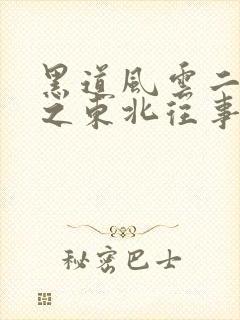 黑道風雲二
之東北往事
秘密巴士